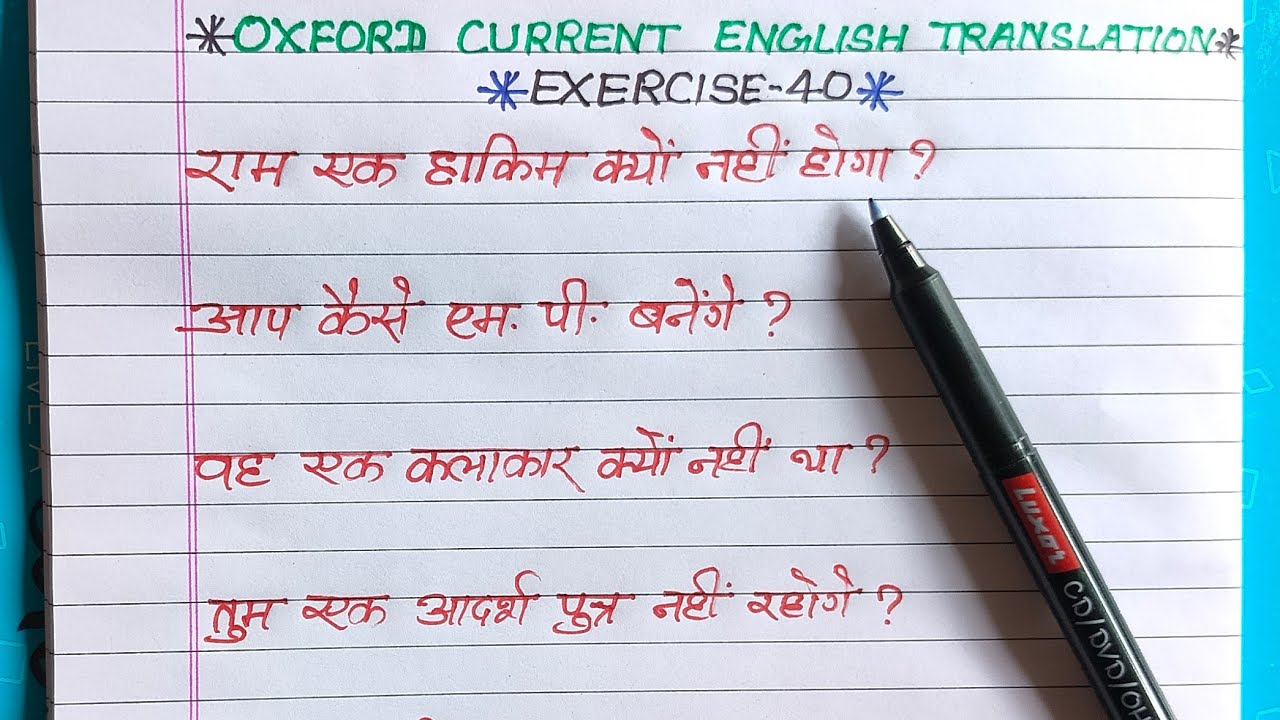 *OXFORD CURRENT ENGLISH TRANSLATION*
*EXERCISE-40*
राम एक हाकिम क्यों नहीं होगा ?
आप कैसे एम. पी. बनेंगे ?
वह एक कलाकार क्यों नहीं था ?
तुम एक आदर्श पुत्र नहीं रहोगे ?
Luxor
CD/DVD/OH